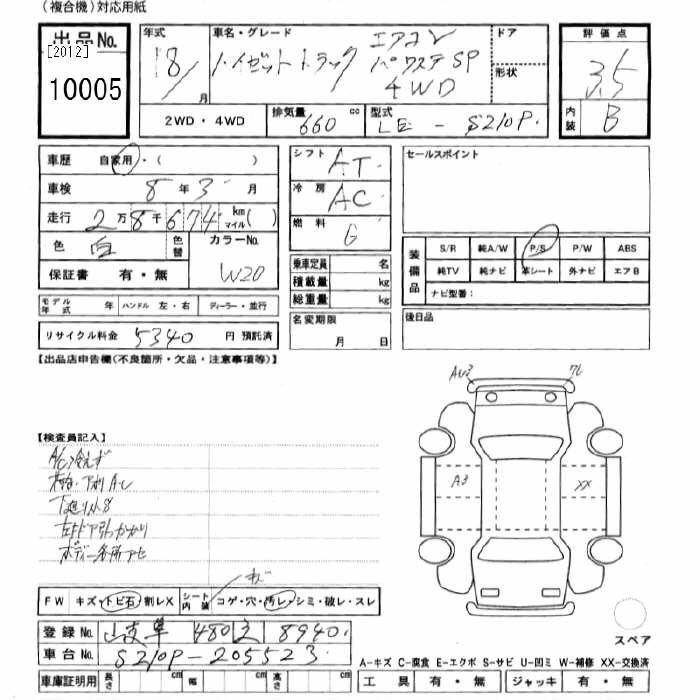 (複合機)対応用紙
出品No.
[2012]
10005
年式
18/
月
車名・グレード
ハイゼットトラック
エアコン
パワステ SP
4WD
ドア
形状
評価点
3.5
内装
B
2WD・4WD
排気量
660
cc
型式
LE - S210P.
車歴
自家用・( )
車検
8年3月
走行
2万8千674
km
マイル( )
色
白
色替
カラーNo.
W20
保証書 有・無
モデル年式
年
ハンドル 左・右
ディーラー・並行
リサイクル料金
5340
円 預託済
シフト
AT.
冷房
AC
燃料
G
乗車定員 名
積載量 kg
総重量 kg
名変期限
月 日
セールスポイント
装備品
S/R 純A/W P/S P/W ABS
純TV 純ナビ 革シート 外ナビ エアB
ナビ型番:
後日品
【出品店申告欄(不良箇所・欠品・注意事項等)】
【検査員記入】
A/C冷えず
下廻り小S
ボディー各所アセ
A3
XX
FW キズ・トビ石・割レX
シート内装
コゲ・穴・汚レ・シミ・破レ・スレ
登録No.
480
8940.
車台No.
S210P-205523
車庫証明用
長さ cm
幅 cm
高さ cm
スペア
A-キズ C-腐食 E-エクボ S-サビ U-凹ミ W-補修 XX-交換済
工具 有・無
ジャッキ 有・無